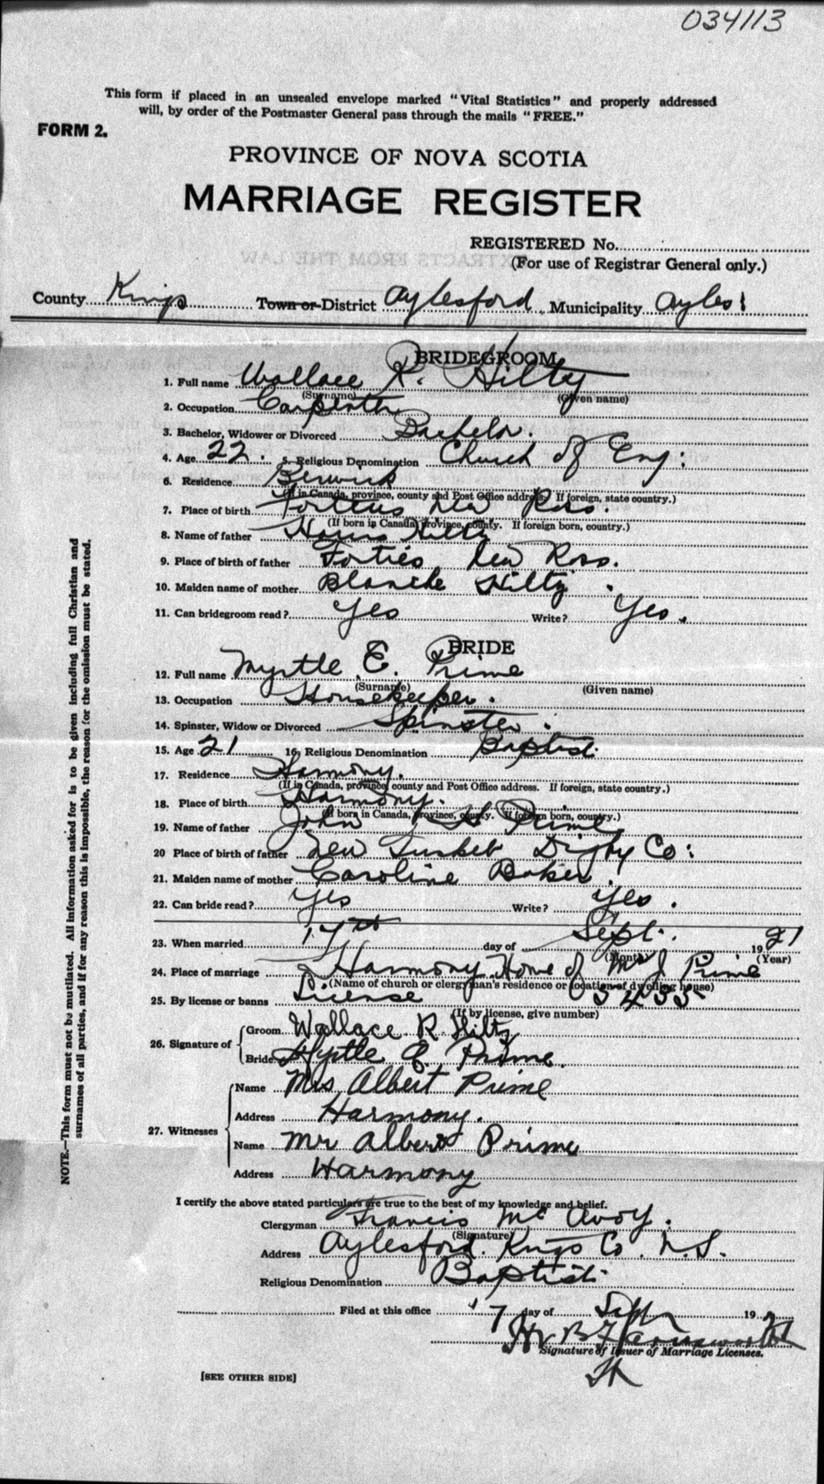 034113
This form if placed in an unsealed envelope marked "Vital Statistics" and properly addressed
will, by order of the Postmaster General pass through the mails "FREE."
FORM 2.
PROVINCE OF NOVA SCOTIA
MARRIAGE REGISTER
REGISTERED No.
(For use of Registrar General only.)
County Kings Town or District Aylesford Municipality Ayles
BRIDEGROOM
1. Full name Wallace R. Hilty
(Surname) (Given name)
2. Occupation Carpenter
3. Bachelor, Widower or Divorced Bachelor.
4. Age 22. 5. Religious Denomination Church of Eng:
6. Residence Berwick
(If in Canada, province, county and Post Office address. If foreign, state country.)
7. Place of birth Forties New Ross.
(If born in Canada, province, county. If foreign born, country.)
8. Name of father Hiltz
9. Place of birth of father Forties New Ross.
10. Maiden name of mother Blanche Hiltz.
11. Can bridegroom read? Yes Write? Yes.
BRIDE
12. Full name Myrtle E. Prime
(Surname) (Given name)
13. Occupation Housekeeper.
14. Spinster, Widow or Divorced Spinster.
15. Age 21 16. Religious Denomination Baptist.
17. Residence Harmony.
(If in Canada, province, county and Post Office address. If foreign, state country.)
18. Place of birth Harmony.
(If born in Canada, province, county. If foreign born, country.)
19. Name of father John H Prime
20 Place of birth of father New Tusket Digby Co:
21. Maiden name of mother Caroline Baker.
22. Can bride read? Yes Write? Yes.
23. When married 17th day of Sept. 1921
(Month) (Year)
24. Place of marriage Harmony Home of Mr J. Prime
(Name of church or clergyman's residence or location of dwelling house)
25. By license or banns License 5455
(If by license, give number)
26. Signature of Groom Wallace R Hiltz
Bride Myrtle E. Prime.
27. Witnesses Name Mrs Albert Prime
Address Harmony.
Name Mr Albert Prime
Address Harmony
I certify the above stated particulars are true to the best of my knowledge and belief.
Clergyman Francis McAvoy.
(Signature)
Address Aylesford. Kings Co. N.S.
Religious Denomination Baptist.
Filed at this office 17 day of Sept 192
Signature of Issuer of Marriage Licenses.
[SEE OTHER SIDE]
NOTE.—This form must not be mutilated. All information asked for is to be given including full Christian and
surnames of all parties, and if for any reason this is impossible, the reason for the omission must be stated.